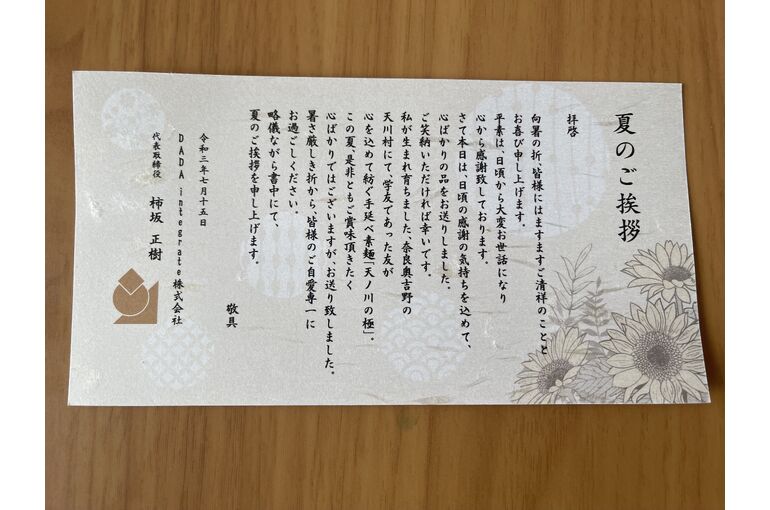 夏のご挨拶
拝啓
向暑の折、皆様にはますますご清祥のことと
お喜び申し上げます。
平素は、日頃から大変お世話になり
心から感謝致しております。
さて本日は、日頃の感謝の気持ちを込めて、
心ばかりの品をお送りしました。
ご笑納いただければ幸いです。
私が生まれ育ちました、奈良奥吉野の
天川村にて、学友であった友が
心を込めて紡ぐ手延べ素麺「天ノ川の極」。
この夏、是非ともご賞味頂きたく
心ばかりではございますが、お送り致しました。
暑さ厳しき折から、皆様のご自愛専一に
お過ごしください。
略儀ながら書中にて、
夏のご挨拶を申し上げます。
敬具
令和三年七月十五日
DADA integrate株式会社
代表取締役 柿坂 正樹